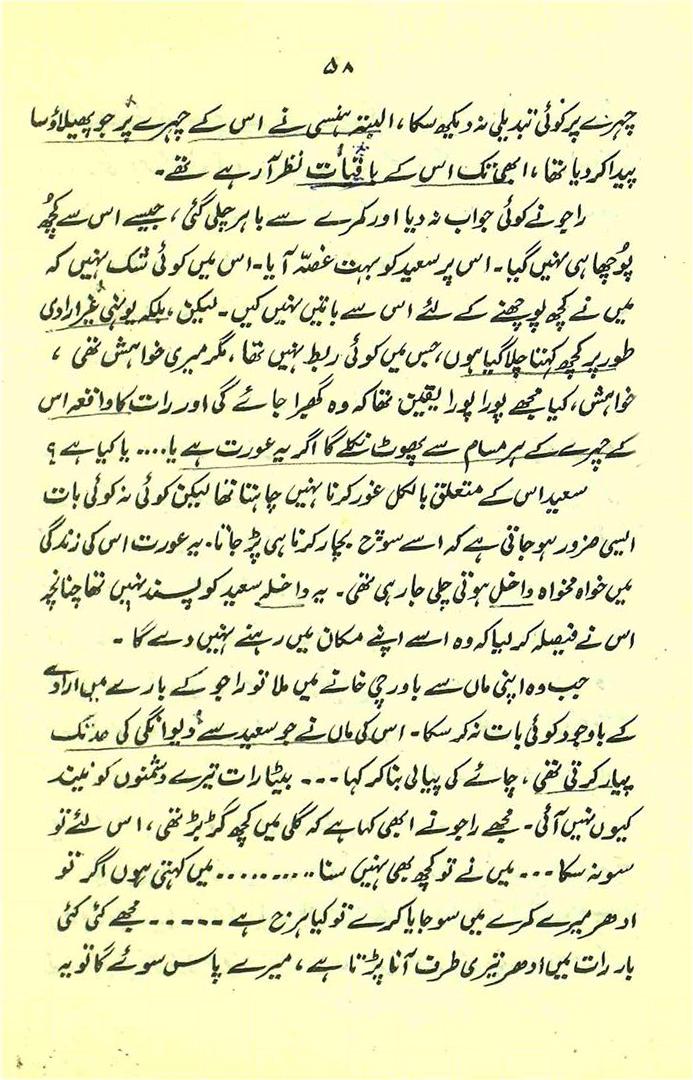 ۵۸
چہرے پر کوئی تبدیلی نہ دیکھ سکا، البتہ ہنسی نے اس کے چہرے پر جو پھیلاؤ سا
پیدا کر دیا تھا، ابھی تک اس کے باقیات نظر آ رہے تھے۔
راجو نے کوئی جواب نہ دیا اور کمرے سے باہر چلی گئی، جیسے اس سے کچھ
پوچھا ہی نہیں گیا۔ اس پر سعید کو بہت غصّہ آیا۔ اس میں کوئی شک نہیں کہ
میں نے کچھ پوچھنے کے لئے اس سے باتیں نہیں کیں۔ لیکن، بلکہ یونہی غیر ارادی
طور پر کچھ کہتا چلا گیا ہوں، جس میں کوئی ربط نہیں تھا، مگر میری خواہش تھی،
خواہش، کیا مجھے پورا پورا یقین تھا کہ وہ گھبرا جائے گی اور رات کا واقعہ اس
کے چہرے کے ہر مسام سے پھوٹ نکلے گا اگر یہ عورت ہے یا.... یا کیا ہے؟
سعید اس کے متعلق بالکل غور کرنا نہیں چاہتا تھا لیکن کوئی نہ کوئی بات
ایسی ضرور ہو جاتی ہے کہ اسے سوچ بچار کرنا ہی پڑ جاتا۔ یہ عورت اس کی زندگی
میں خواہ مخواہ داخل ہوتی چلی جا رہی تھی۔ یہ داخلہ سعید کو پسند نہیں تھا چنانچہ
اس نے فیصلہ کر لیا کہ وہ اسے اپنے مکان میں رہنے نہیں دے گا۔
جب وہ اپنی ماں سے باورچی خانے میں ملا تو راجو کے بارے میں ارادے
کے باوجود کوئی بات نہ کر سکا۔ اس کی ماں نے جو سعید سے دیوانگی کی حد تک
پیار کرتی تھی، چائے کی پیالی بنا کر کہا --- بیٹا رات تیرے دشمنوں کو نیند
کیوں نہیں آئی۔ مجھے راجو نے ابھی کہا ہے کہ گلی میں کچھ گڑبڑ تھی، اس لئے تو
سو نہ سکا --- میں نے تو کچھ بھی نہیں سنا ......... میں کہتی ہوں اگر تو
ادھر میرے کمرے میں سو جایا کرے تو کیا ہرج ہے ----- مجھے کئی کئی
بار رات میں ادھر تیری طرف آنا پڑتا ہے، میرے پاس سوئے گا تو یہ